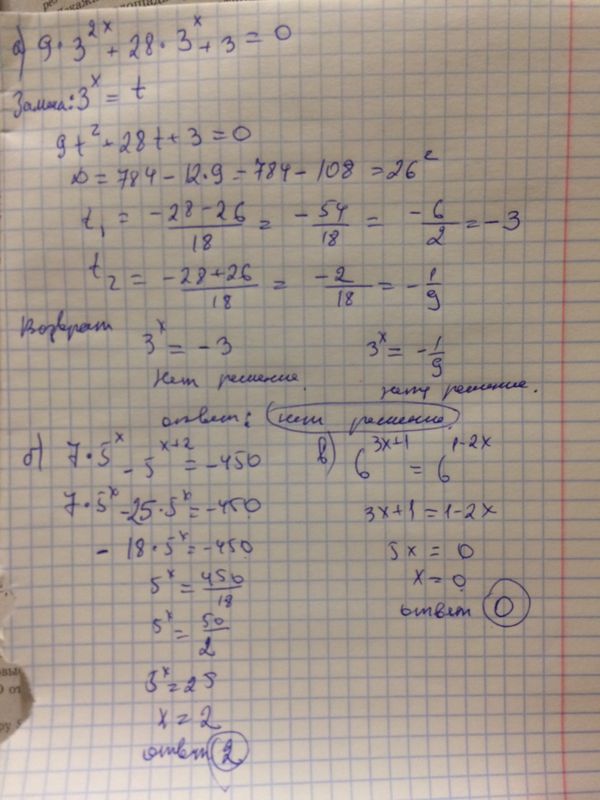 а) 9·3^2x + 28·3^x + 3 = 0
Замена: 3^x = t
9t² + 28t + 3 = 0
D = 784 - 12·9 = 784 - 108 = 26²
t₁ = -28-26/18 = -54/18 = -6/2 = -3
t₂ = -28+26/18 = -2/18 = -1/9
Возврат
3^x = -3
3^x = -1/9
Нет решение.
решение.
ответ: нет решение
б) 7·5^x - 5^x+2 = -450
7·5^x - 25·5^x = -450
- 18·5^x = -450
5^x = 450/18
5^x = 50/2
5^x = 25
x = 2
ответ 2
в) 6^3x+1 = 6^1-2x
3x+1 = 1-2x
5x = 0
x = 0
ответ 0